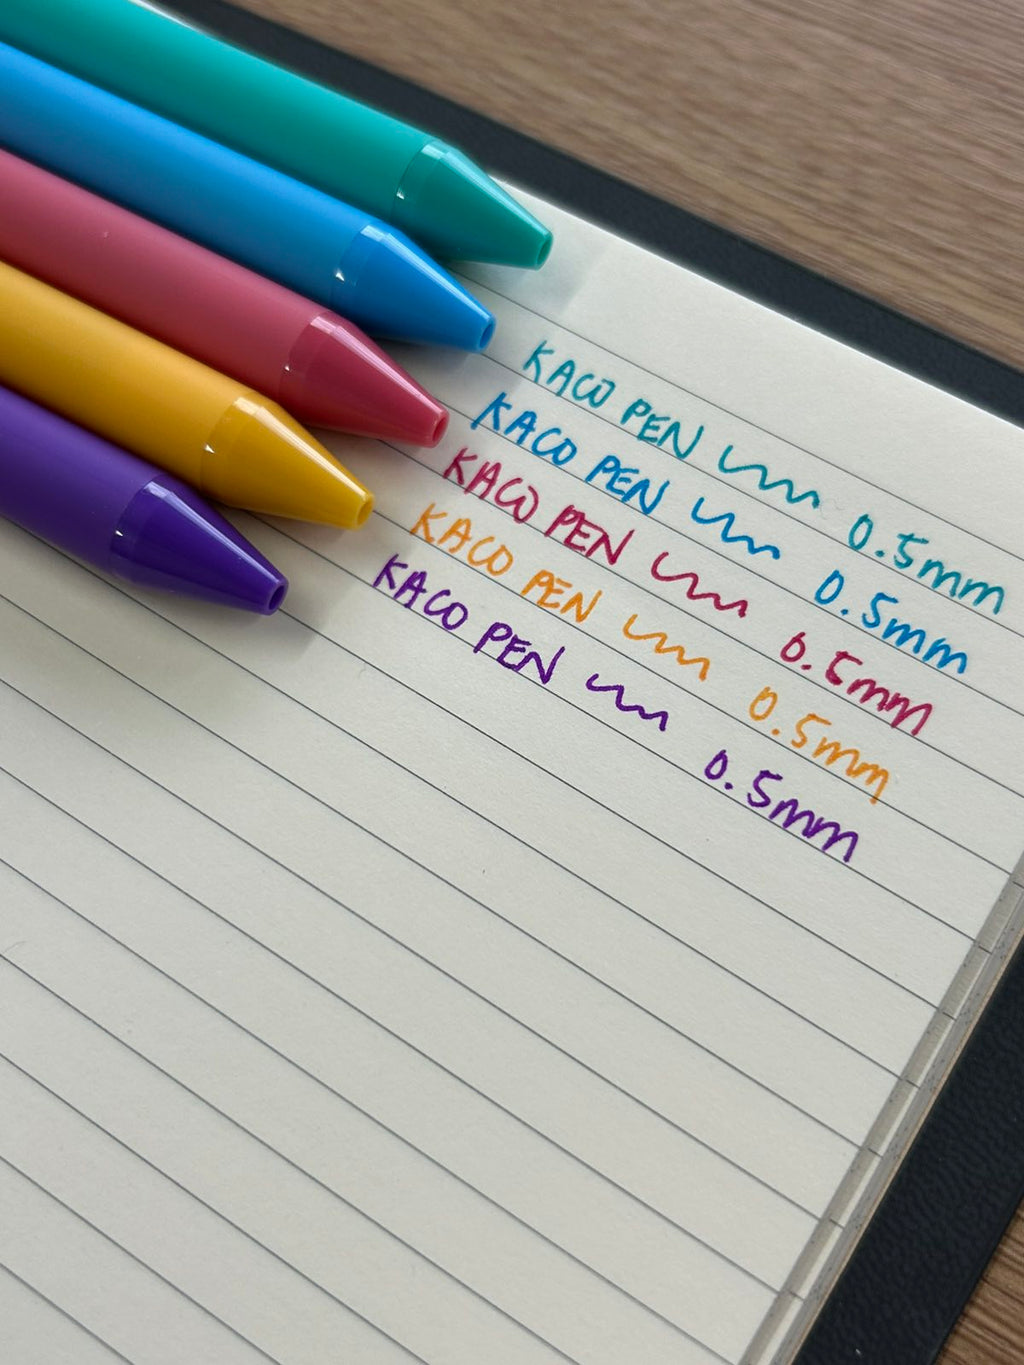 KACO PEN 0.5mm
KACO PEN 0.5mm
KACO PEN 0.5mm
KACO PEN 0.5mm
KACO PEN 0.5mm